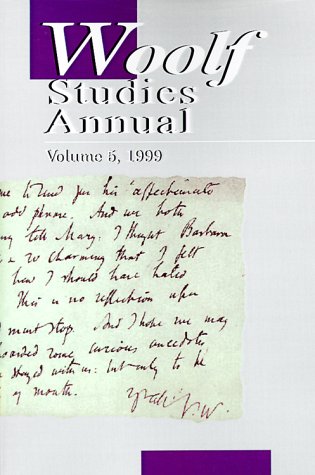 Woolf
Studies
Annual
Volume 5, 1999
me to send you his affectionate
odd phrase. And we both
tell Mary: I thought Barbara
so charming that I felt
how I should have hated
This is no reflection upon
must stop. And I hope we may
hoarded some curious anecdotes
stayed with us: but only to be
of mouth. V.W.